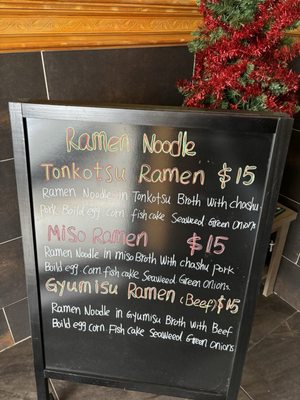 Ramen Noodle
Tonkotsu Ramen $15
Ramen Noodle in Tonkotsu Broth with chashu
Pork Boild egg corn fishcake Seaweed Green Onions
Miso Ramen $15
Ramen Noodle in miso Broth with chashu pork
Boild egg corn fishcake Seaweed Green Onions.
Gyumisu Ramen (Beef) $15
Ramen Noodle in Gyumisu Broth with Beef
Boild egg corn Fish cake Seaweed Green Onions.